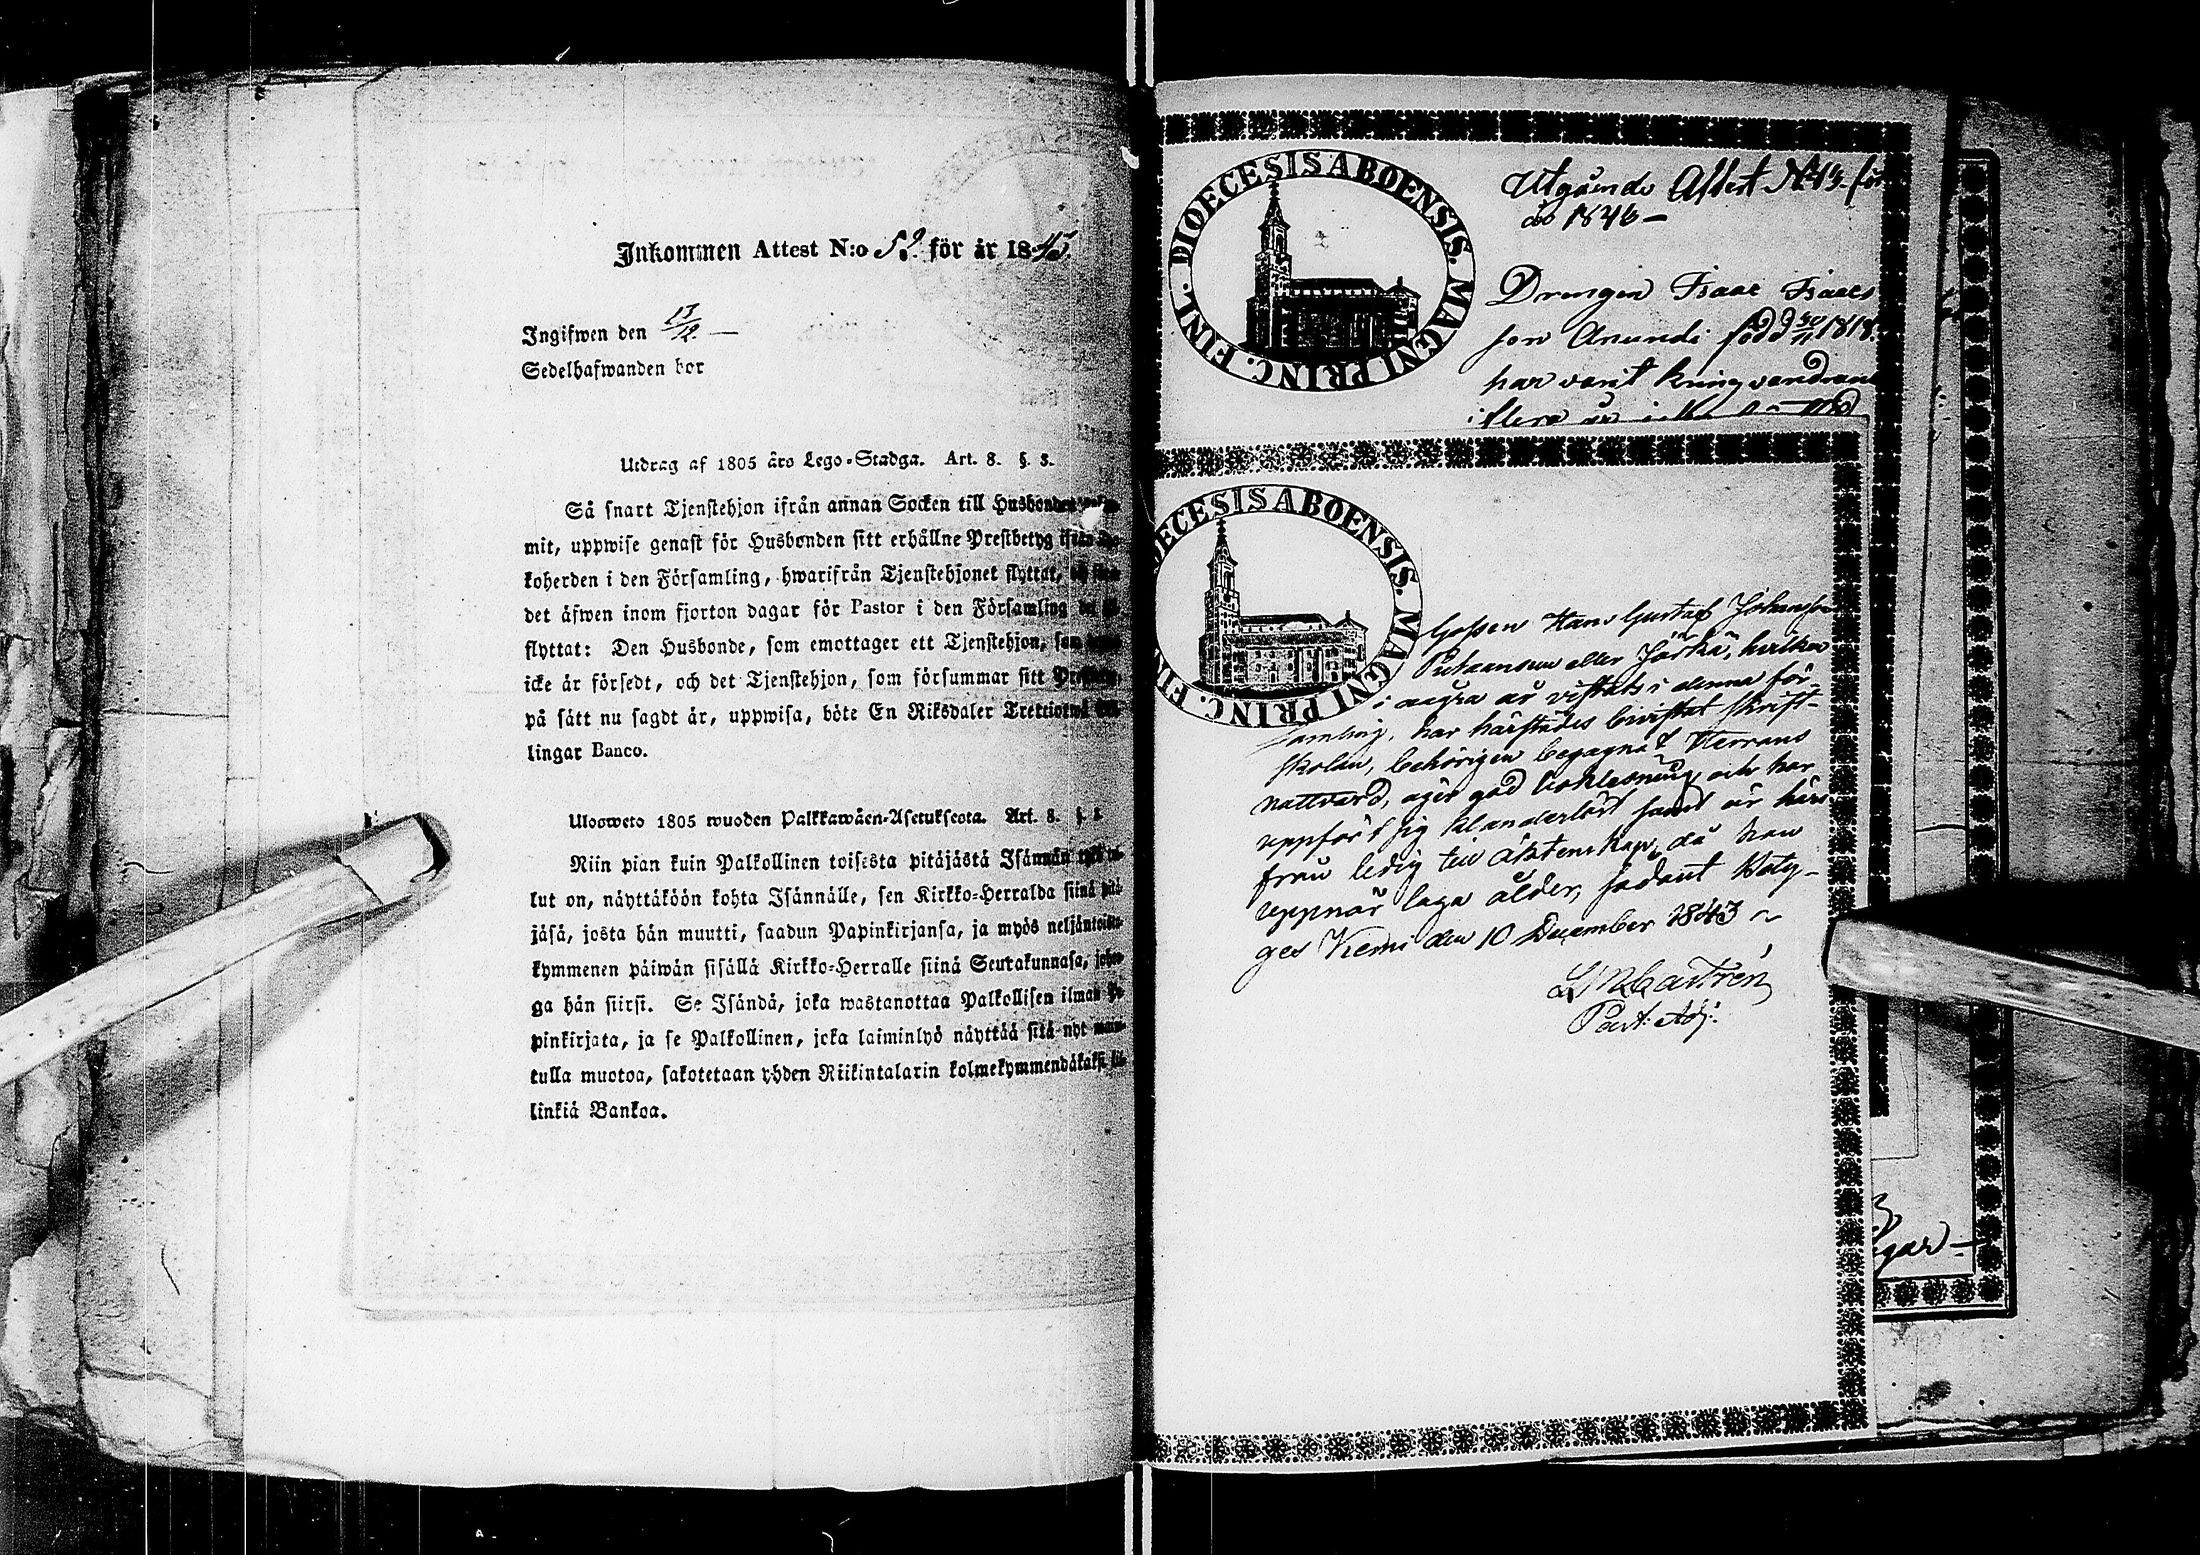 Inkommen Attest N:o 52. för år 1845.
Ingifwen den 13/12. —
Sedelhafwanden bor
Utdrag af 1805 års Lego-Stadga. Art. 8. §. 3.
Så snart Tjenstehjon ifrån annan Socken till Husbonden
mit, uppwise genast för Husbonden sitt erhållne Prestbetyg ifrån
koherden i den Församling, hwarifrån Tjenstehjonet flyttat,
det äfwen inom fjorton dagar för Pastor i den Församling det
flyttat: Den Husbonde, som emottager ett Tjenstehjon, som
icke är försedt, och det Tjenstehjon, som försummar sitt
på sätt nu sagdt är, uppwisa, böte En Riksdaler Trettiotwå
lingar Banco.
Ulosweto 1805 wuoden Palkkawäen-Asetuksesta. Art. 8. §.
Niin pian kuin Palkollinen toisesta pitäjästä Isännän
lut on, näyttäköön kohta Isännälle, sen Kirkko-Herralda siinä pitä-
jäsä, josta hän muutti, saadun Papinkirjansa, ja myös neljäntoista-
kymmenen päiwän sisällä Kirkko-Herralle siinä Seurakunnasa, johon-
ga hän siirsi. Se Isändä, joka wastanottaa Palkollisen ilman Pa-
pinkirjata, ja se Palkollinen, joka laiminlyö näyttää sitä nyt
tulla muotoa, sakotetaan yhden Riikintalarin kolmekymmendäkaksi
linkiä Bankoa.
DIOECESIS ABOENSIS. MAGNI PRINC. FINL.
Utgående Attest N 43. för
år 1846 —
Drengen Isaac Isaacs
son Anundi född 30/11 1818.
har varit kringvandrand
i flera år icke
DIOECESIS ABOENSIS. MAGNI PRINC. FIN
Gossen Hans Gustaf Johansson
eller Jörkä, hvilken
i några år vistats i denna för-
samling, har härstädes bivistat skrift-
skolan, behörigen begagnat Herrans
nattvard, äger god boklesning och har
uppfört sig klanderlöst samt är häri
från ledig till äktenskap, då han
uppnår laga ålder, sådant betyg-
ges Kemi den 10 December 1843 ~
Castrén
Past. Adj: